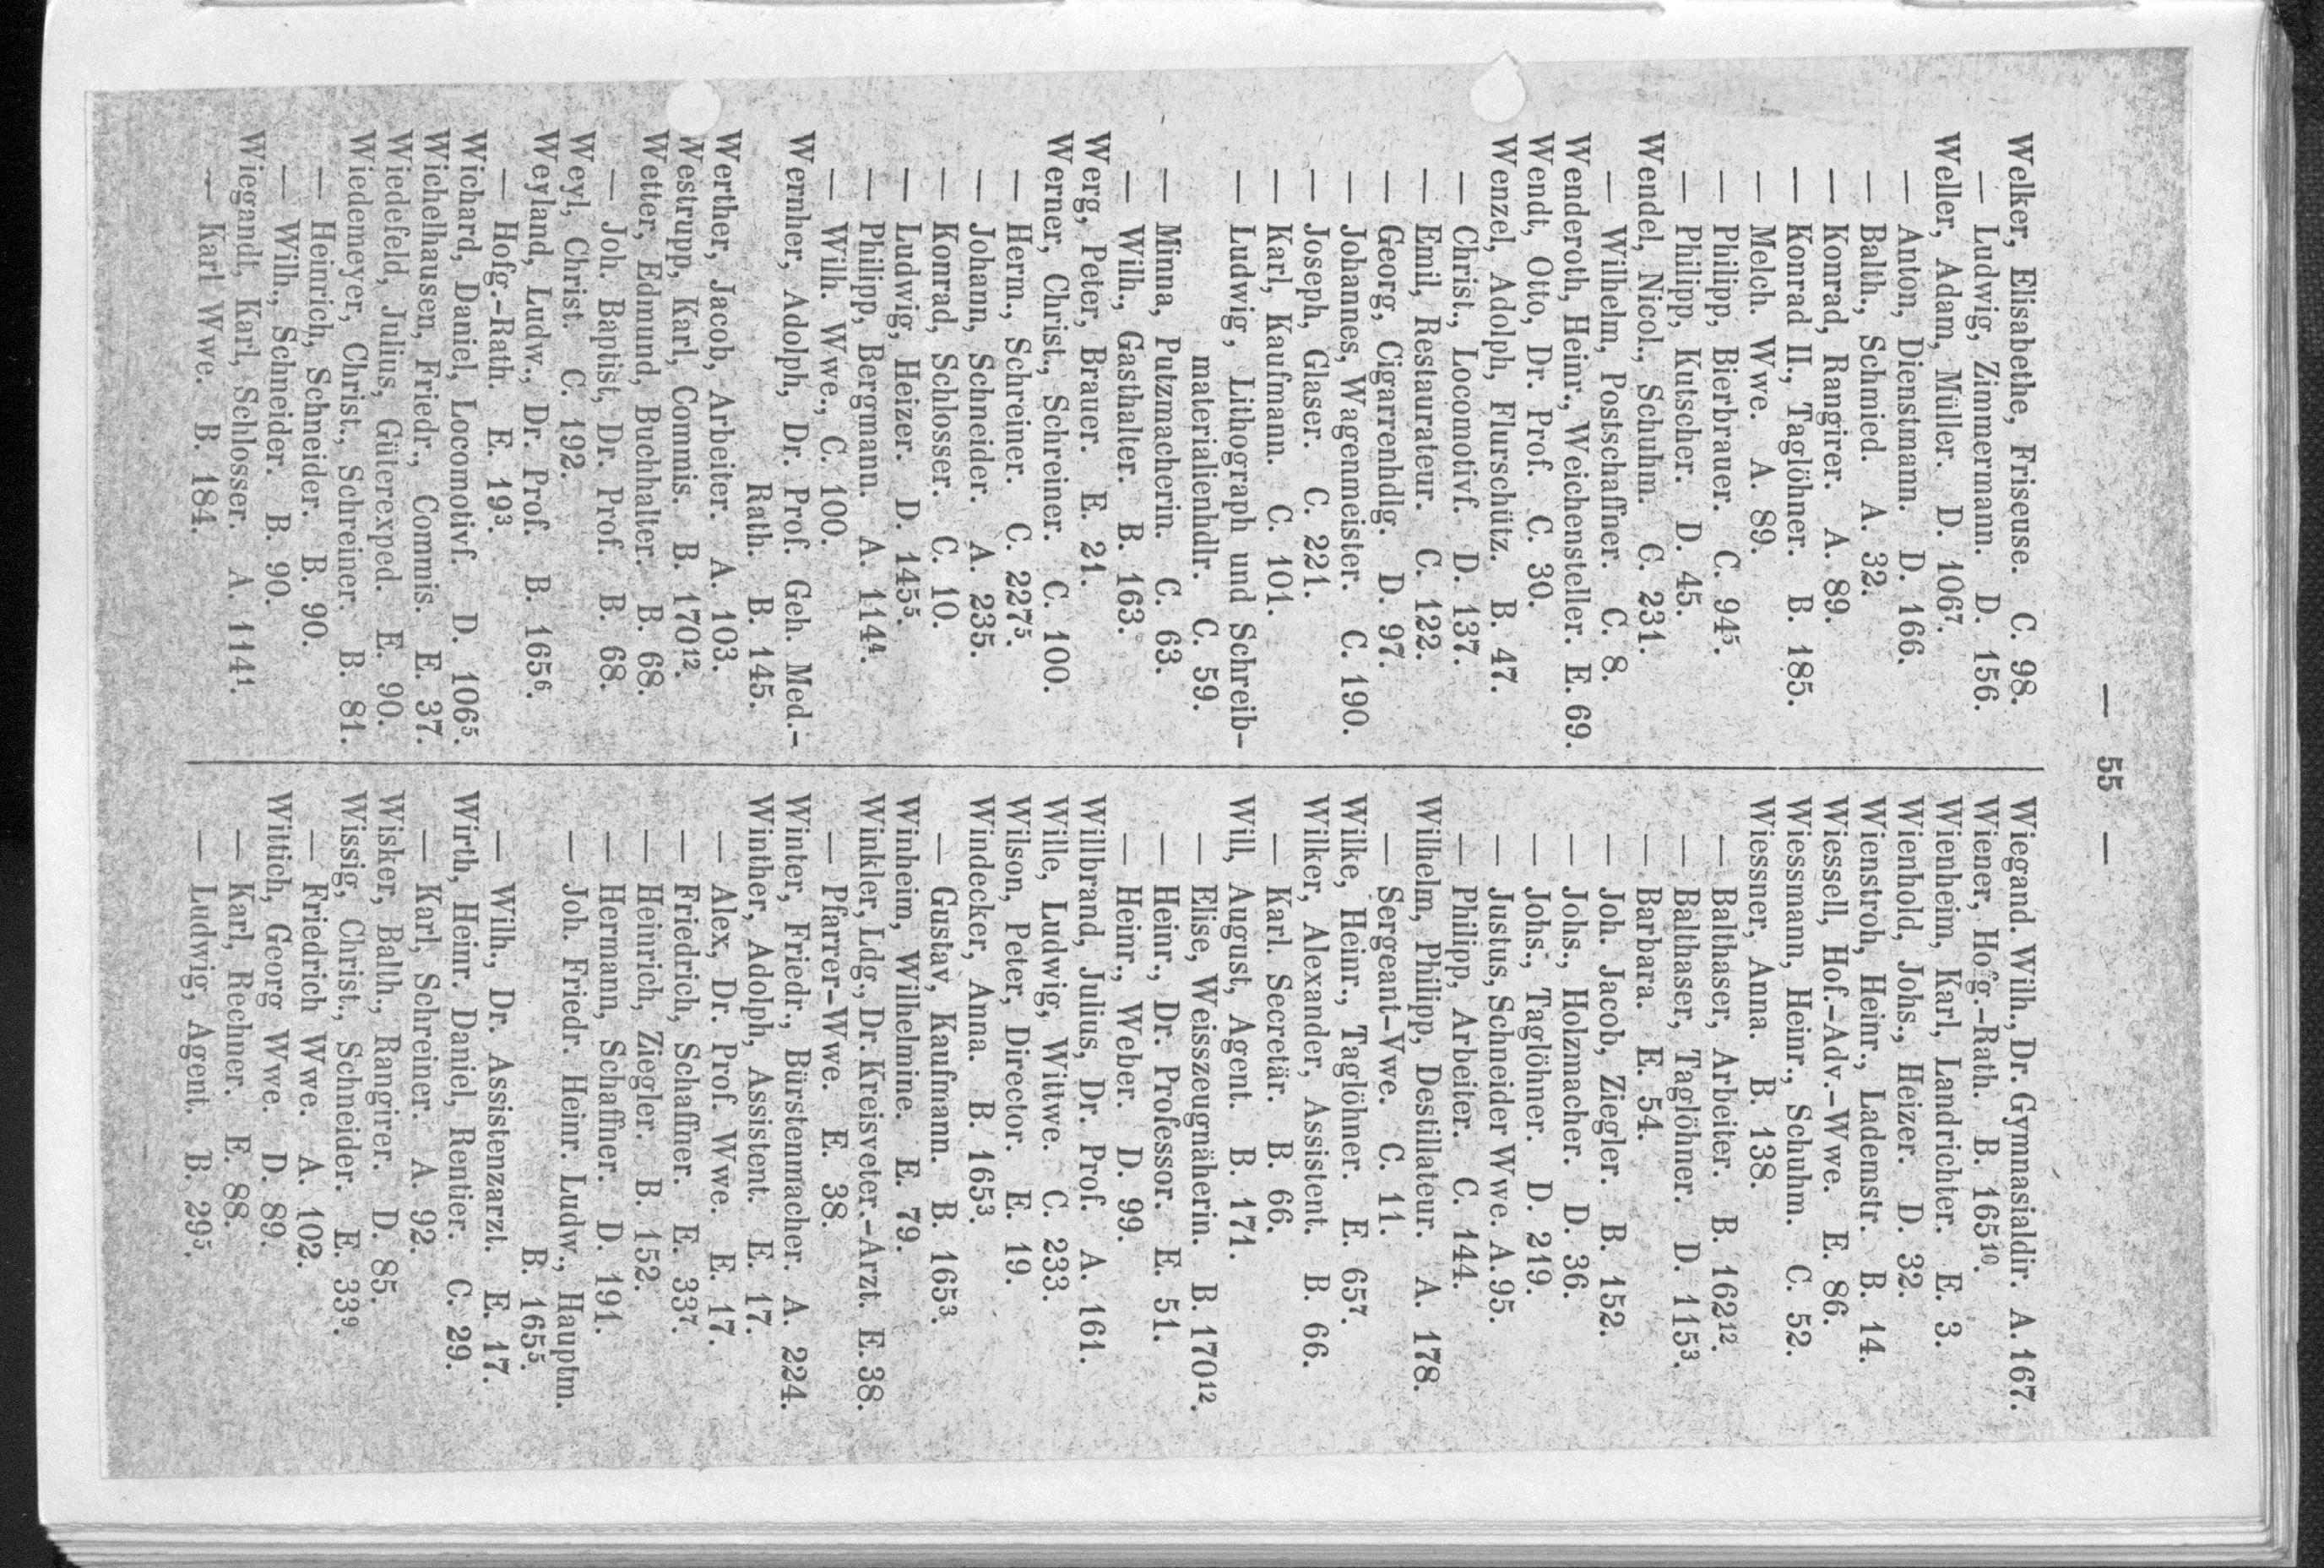 — 55 —
Welker, Elisabethe, Friseuse. C. 98.
— Ludwig, Zimmermann. D. 156.
Weller, Adam, Müller. D. 106⁷.
— Anton, Dienstmann. D. 166.
— Balth., Schmied. A. 32.
— Konrad, Rangirer. A. 89.
— Konrad II., Taglöhner. B. 185.
— Melch. Wwe. A. 89.
— Philipp, Bierbrauer. C. 94⁵.
— Philipp, Kutscher. D. 45.
Wendel, Nicol., Schuhm. C. 231.
— Wilhelm, Postschaffner. C. 8.
Wenderoth, Heinr., Weichensteller. E. 69.
Wendt, Otto, Dr. Prof. C. 30.
Wenzel, Adolph, Flurschütz. B. 47.
— Christ., Locomotivf. D. 137.
— Emil, Restaurateur. C. 122.
— Georg, Cigarrenhdlg. D. 97.
— Johannes, Wagenmeister. C. 190.
— Joseph, Glaser. C. 221.
— Karl, Kaufmann. C. 101.
— Ludwig, Lithograph und Schreib-
materialienhdlr. C. 59.
— Minna, Putzmacherin. C. 63.
— Wilh., Gasthalter. B. 163.
Werg, Peter, Brauer. E. 21.
Werner, Christ., Schreiner. C. 100.
— Herm., Schreiner. C. 227⁵.
— Johann, Schneider. A. 235.
— Konrad, Schlosser. C. 10.
— Ludwig, Heizer. D. 145⁵.
— Philipp, Bergmann. A. 114⁴.
— Wilh. Wwe., C. 100.
Wernher, Adolph, Dr. Prof. Geh. Med.-
Rath. B. 145.
Werther, Jacob, Arbeiter. A. 103.
Westrupp, Karl, Commis. B. 170¹².
Wetter, Edmund, Buchhalter. B. 68.
— Joh. Baptist, Dr. Prof. B. 68.
Weyl, Christ. C. 192.
Weyland, Ludw., Dr. Prof. B. 165⁶.
— Hofg.-Rath. E. 19³.
Wichard, Daniel, Locomotivf. D. 106⁵.
Wichelhausen, Friedr., Commis. E. 37.
Wiedefeld, Julius, Güterexped. E. 90.
Wiedemeyer, Christ., Schreiner. B. 81.
— Heinrich, Schneider. B. 90.
— Wilh., Schneider. B. 90.
Wiegandt, Karl, Schlosser. A. 114¹.
— Karl Wwe. B. 184.
Wiegand. Wilh., Dr. Gymnasialdir. A. 167.
Wiener, Hofg.-Rath. B. 165¹⁰.
Wienheim, Karl, Landrichter. E. 3.
Wienhold, Johs., Heizer. D. 32.
Wienstroh, Heinr., Lademstr. B. 14.
Wiessell, Hof.-Adv.-Wwe. E. 86.
Wiessmann, Heinr., Schuhm. C. 52.
Wiessner, Anna. B. 138.
— Balthaser, Arbeiter. B. 162¹².
— Balthaser, Taglöhner. D. 115³.
— Barbara. E. 54.
— Joh. Jacob, Ziegler. B. 152.
— Johs., Holzmacher. D. 36.
— Johs., Taglöhner. D. 219.
— Justus, Schneider Wwe. A. 95.
— Philipp, Arbeiter. C. 144.
Wilhelm, Philipp, Destillateur. A. 178.
— Sergeant-Vwe. C. 11.
Wilke, Heinr., Taglöhner. E. 65⁷.
Wilker, Alexander, Assistent. B. 66.
— Karl. Secretär. B. 66.
Will, August, Agent. B. 171.
— Elise, Weisszeugnäherin. B. 170¹².
— Heinr., Dr. Professor. E. 51.
— Heinr., Weber. D. 99.
Willbrand, Julius, Dr. Prof. A. 161.
Wille, Ludwig, Wittwe. C. 233.
Wilson, Peter, Director. E. 19.
Windecker, Anna. B. 165³.
— Gustav, Kaufmann. B. 165³.
Winheim, Wilhelmine. E. 79.
Winkler, Ldg., Dr. Kreisveter.-Arzt. E. 38.
— Pfarrer-Wwe. E. 38.
Winter, Friedr., Bürstenmacher. A. 224.
Winther, Adolph, Assistent. E. 17.
— Alex, Dr. Prof. Wwe. E. 17.
— Friedrich, Schaffner. E. 33⁷.
— Heinrich, Ziegler. B. 152.
— Hermann, Schaffner. D. 191.
— Joh. Friedr. Heinr. Ludw., Hauptm.
B. 165⁵.
— Wilh., Dr. Assistenzarzt. E. 17.
Wirth, Heinr. Daniel, Rentier. C. 29.
— Karl, Schreiner. A. 92.
Wisker, Balth., Rangirer. D. 85.
Wissig, Christ., Schneider. E. 33⁹.
— Friedrich Wwe. A. 102.
Wittich, Georg Wwe. D. 89.
— Karl, Rechner. E. 88.
— Ludwig, Agent. B. 29⁵.